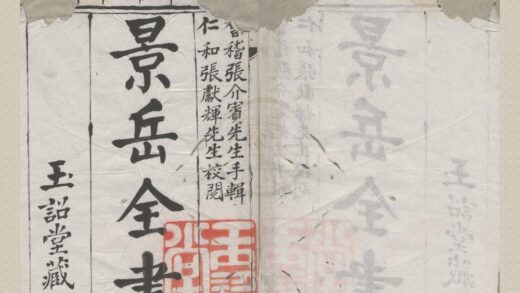 會稽張介賓先生手輯
仁和張獻輝先生校閱
景岳全書
玉詔堂藏